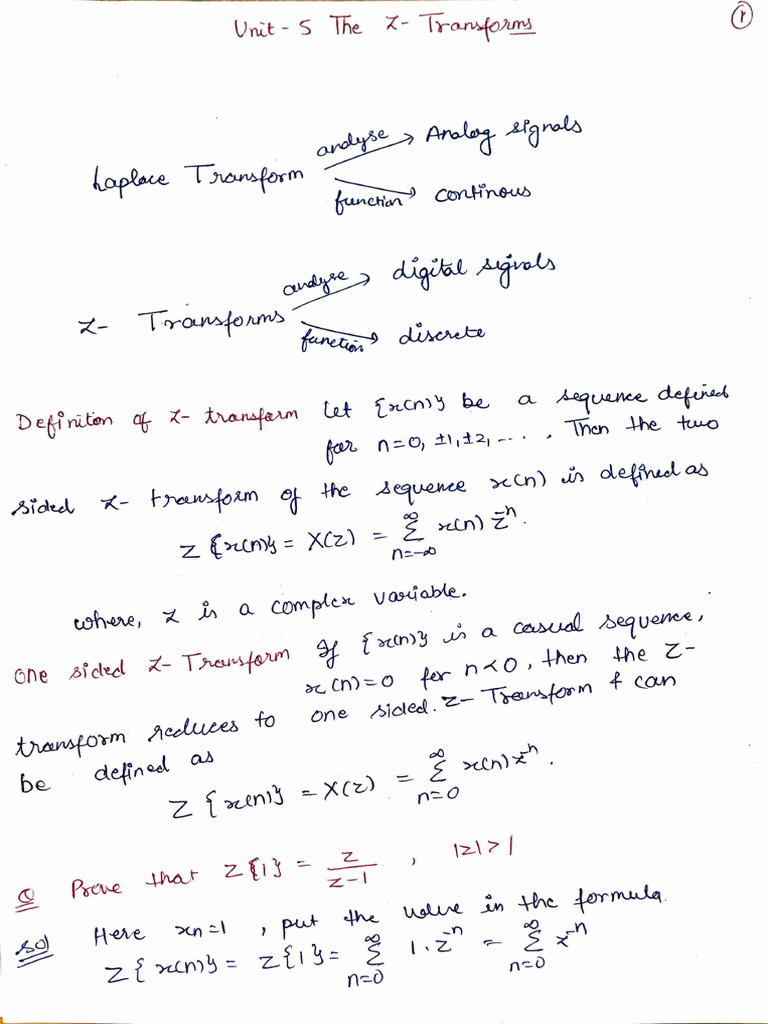 Unit - 5 The Z- Transforms
1
analyse Analog signals
Laplace Transform
function continous
analyse digital signals
Z- Transforms
function discrete
Definiton of Z- transform Let {x(n)} be a sequence defined
for n=0, ±1, ±2, .... , Then the two
sided Z- transform of the sequence x(n) is defined as
Z {x(n)} = X(z) = ∞ Σ n=-∞ x(n) z^-n.
where, z is a complex variable.
One sided Z- Transform If {x(n)} is a casual sequence,
x(n)=0 for n<0, then the Z-
transform reduces to one sided. Z- Transform & can
be defined as
Z {x(n)} = X(z) = ∞ Σ n=0 x(n) z^-n.
Q Prove that Z{1} = z/(z-1) , |z|>1
Sol Here xn=1 , put the value in the formula.
Z{x(n)} = Z{1} = ∞ Σ n=0 1. z^-n = ∞ Σ n=0 z^-n